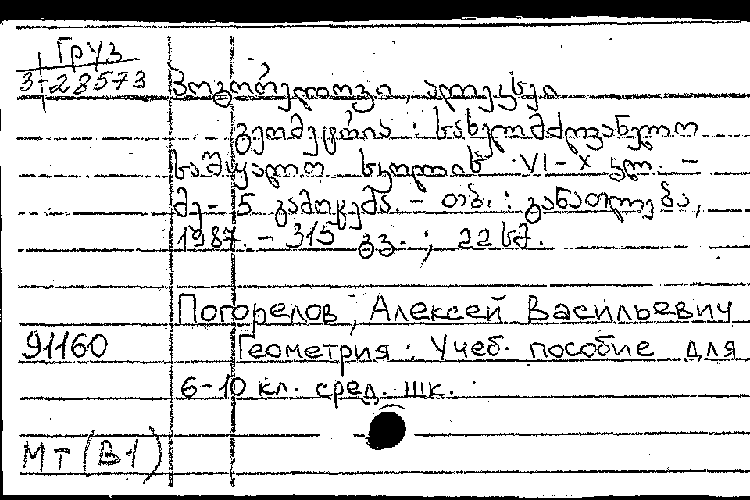 Груз
3-28573
პოგორელოვი, ალექსეი
გეომეტრია : სახელმძღვანელო
საშუალო სკოლის VI-X კლ. -
მე-5 გამოცემა. - თბ. : განათლება,
1987. - 315 გვ. ; 22 სმ.
Погорелов, Алексей Васильевич
91160
Геометрия : Учеб. пособие для
6-10 кл. сред. шк.
МТ (В1)